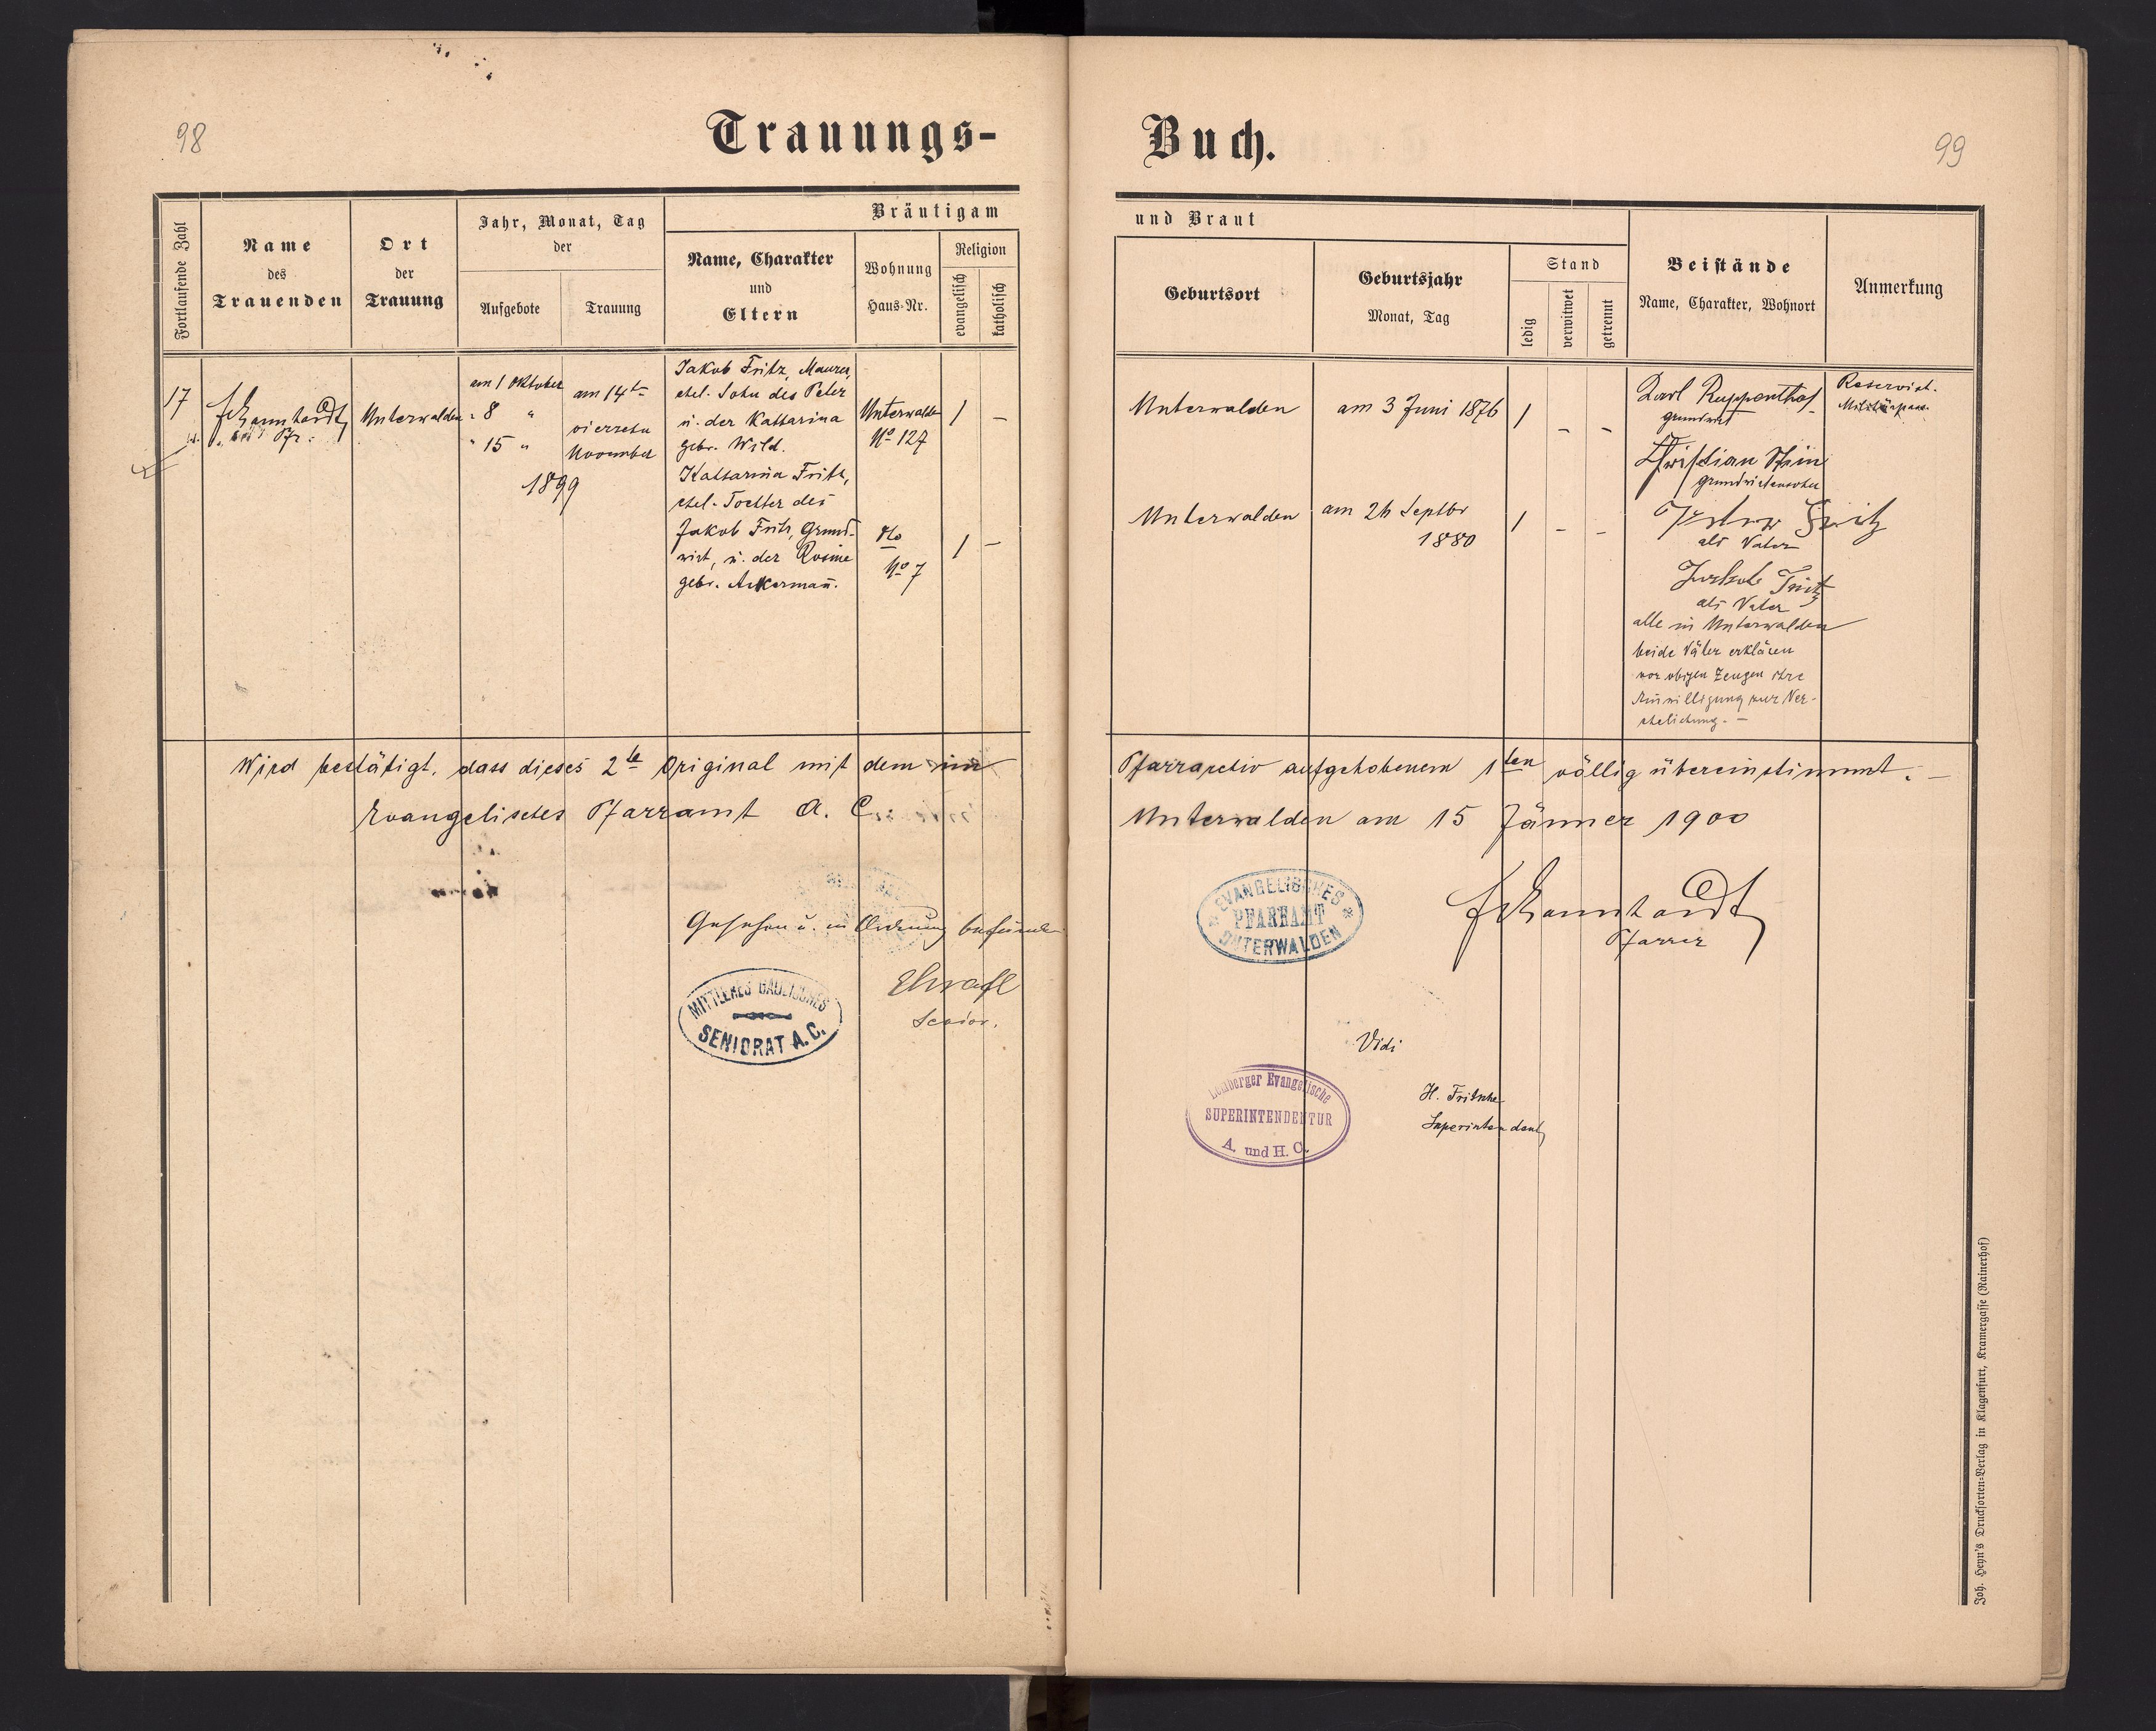 98
Trauungs-
Buch.
99
Fortlaufende Zahl
Name
des
Trauenden
Ort
der
Trauung
Jahr, Monat, Tag
der
Aufgebote
Trauung
Bräutigam
Name, Charakter
und
Eltern
Wohnung
Haus-Nr.
Religion
evangelisch
katholisch
und Braut
Geburtsort
Geburtsjahr
Monat, Tag
Stand
ledig
verwitwet
getrennt
Beistände
Name, Charakter, Wohnort
Anmerkung
17
Unterwalden
am 1 Oktober
" 8 "
" 15 "
am 14te
vierzehn
November
1899
Jakob Fritz, Maurer,
ehel. Sohn des Peter
u. der Katharina
gebr. Wild.
Unterwalden
No 127
1 –
Katharina Fritz,
ehel. Tochter des
Jakob Fritz, Grund-
wirt, u. der Rosine
gebr. Ackermañ.
dto
No 7
1 –
Unterwalden
am 3 Juni 1876
1 – –
Unterwalden
am 26 Septbr
1880
1 – –
Karl Ruppenthal
grundwirt
Christian
Peter Fritz
als Vater
Jakob Fritz
als Vater
alle in Unterwalden
beide Väter erklären
vor obigen Zeugen ihre
Einwilligung zur Ver-
ehelichung. –
Reservist.
Militärpass.
Wird bestätigt, dass dieses 2te Original mit dem im
Pfarrarchiv aufgehobenem 1ten völlig übereinstimmt. –
Evangelisches Pfarramt A. C.
Unterwalden am 15 Jänner 1900
EVANGELISCHES
PFARRAMT
UNTERWALDEN
Pfarrer
Gesehen u. in Ordnung befunden
Senior.
MITTLERES GALIZISCHES
SENIORAT A. C.
Vidi
Lemberger Evangelische
SUPERINTENDENTUR
A. und H. C.
H. Fritsche
Superintendent
Joh. Heyn's Drucksorten-Verlag in Klagenfurt, Kramergasse (Rainerhof)